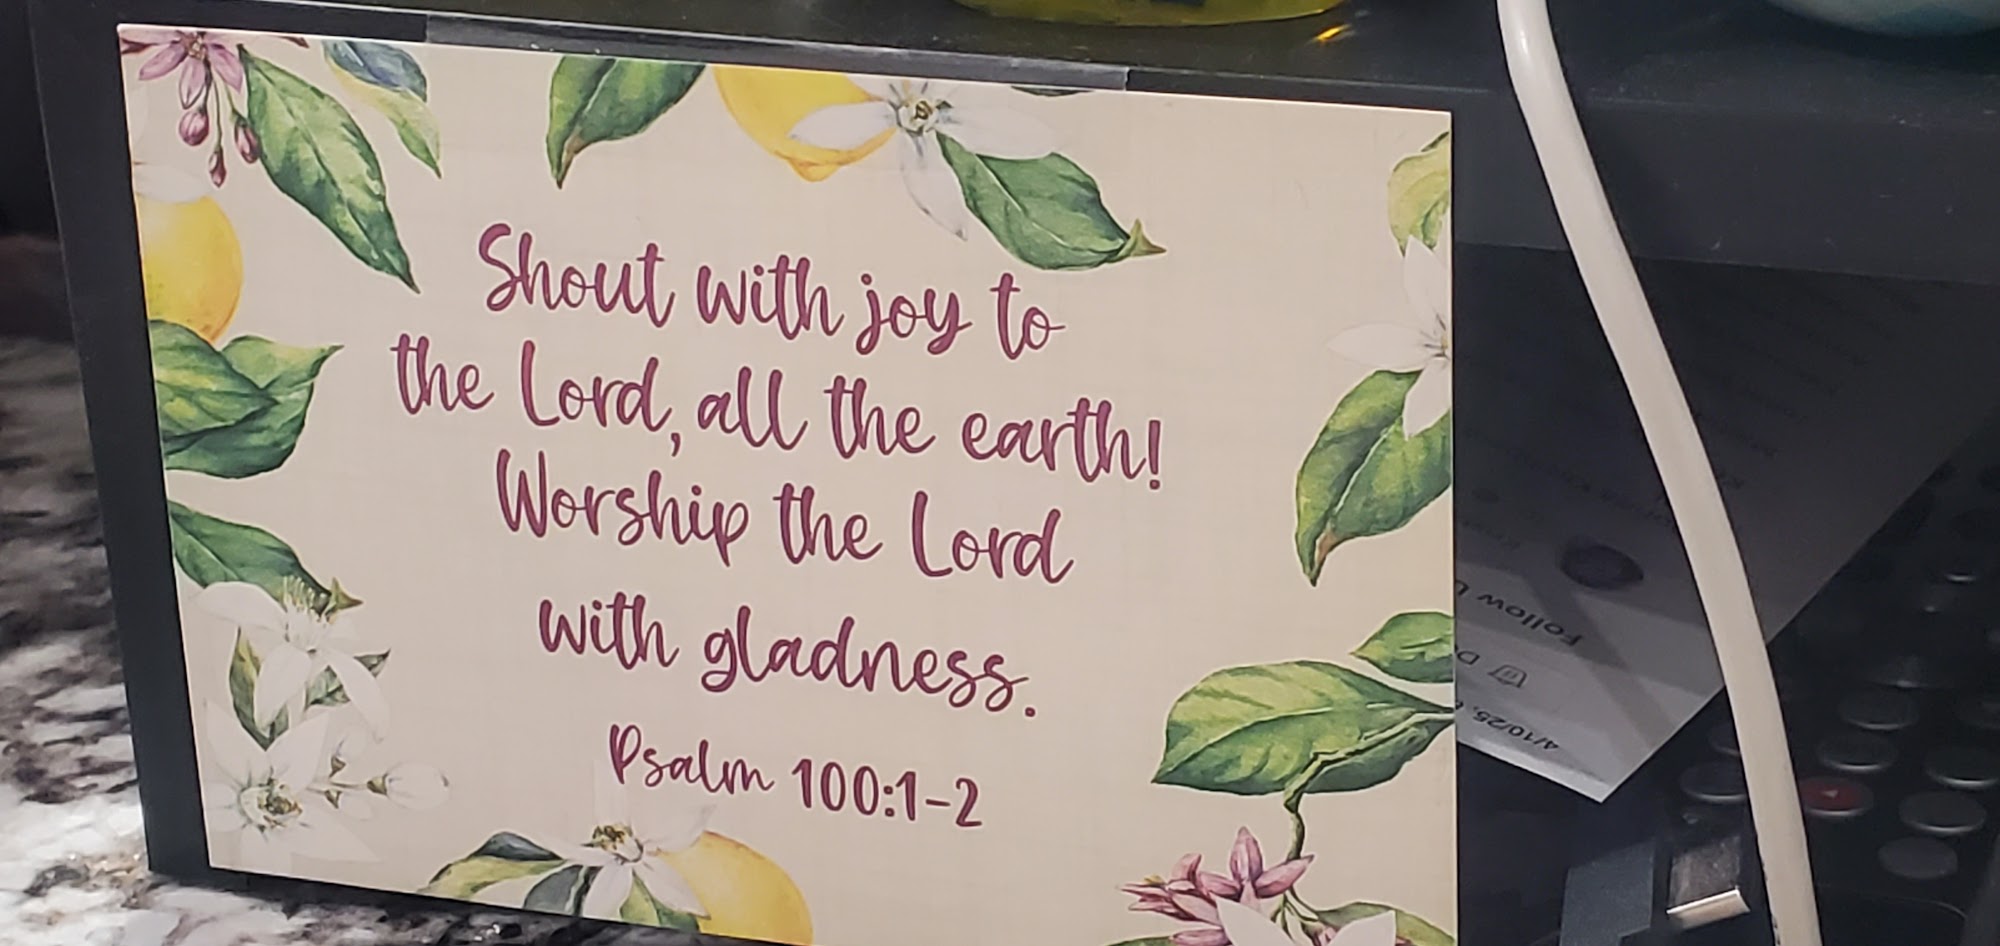 Shout with joy to
the Lord, all the earth!
Worship the Lord
with gladness.
Psalm 100:1-2
Follow
4/10/25,